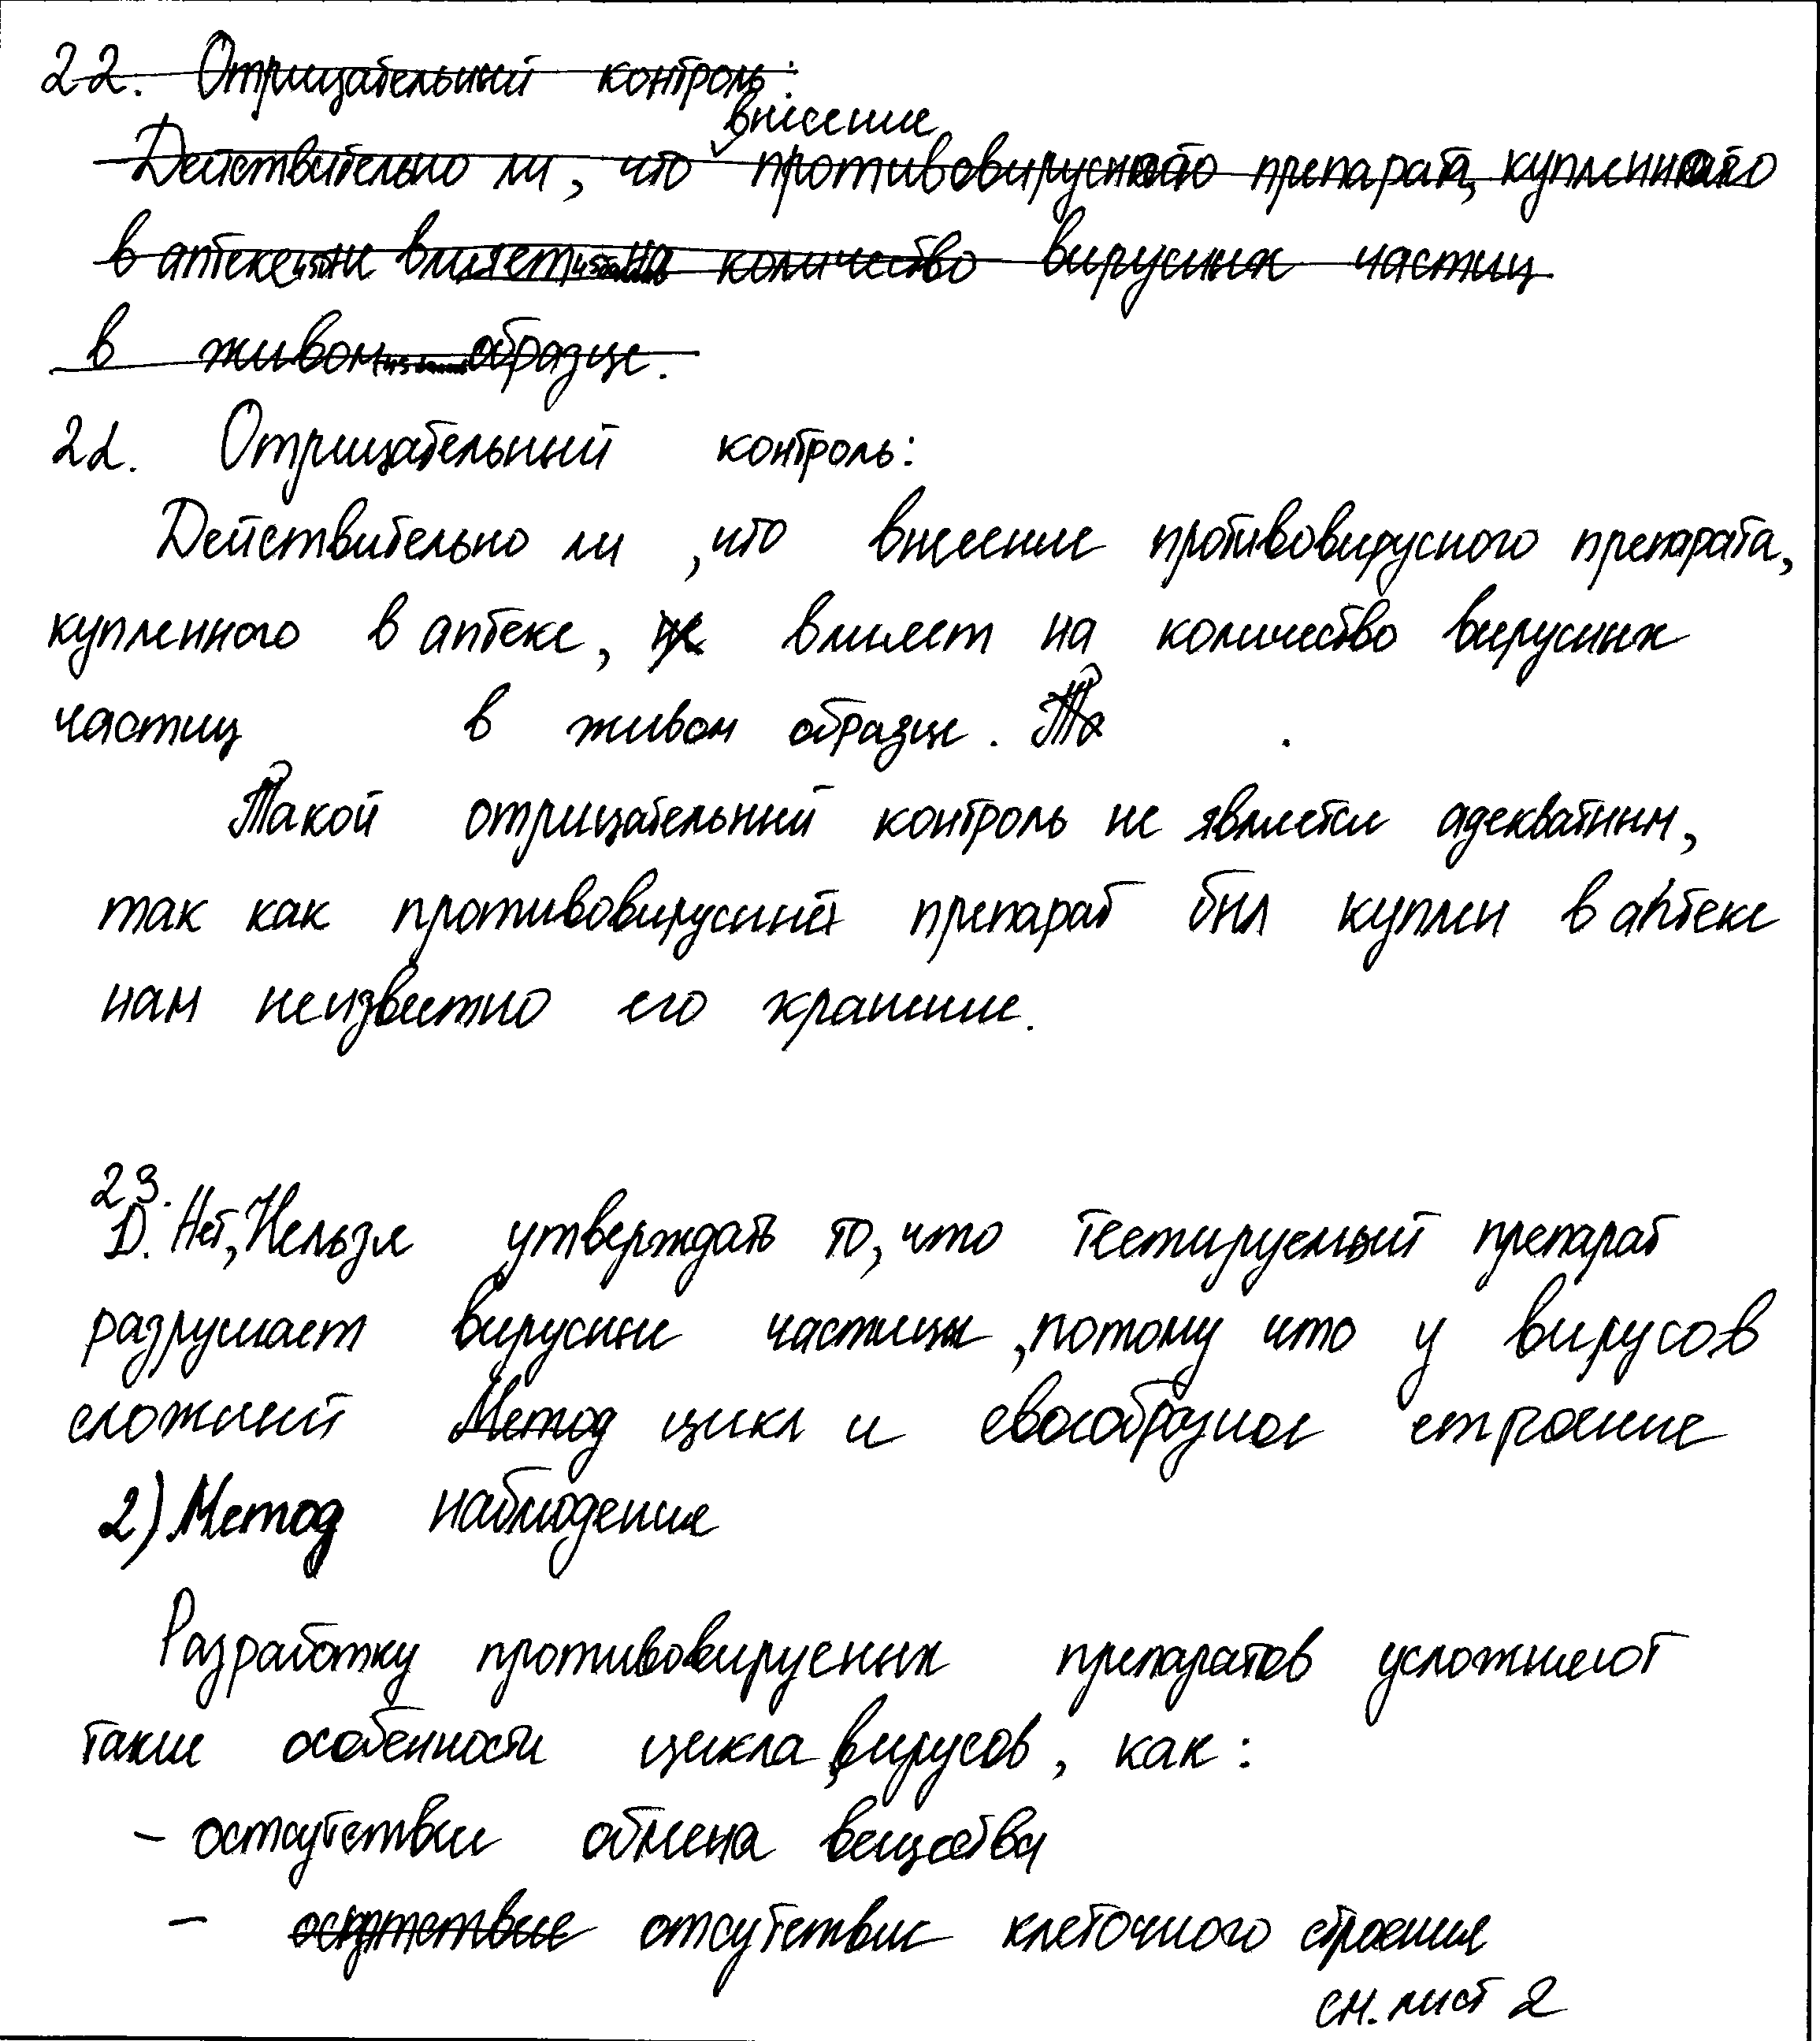 22. Отрицательный контроль:
внесение
Действительно ли, что противовирусного препарата, купленного
в аптеке, не влияет на количество вирусных частиц
в живом образце.
22. Отрицательный контроль:
Действительно ли, что внесение противовирусного препарата,
купленного в аптеке, не влияет на количество вирусных
частиц в живом образце. Та
Такой отрицательный контроль не является адекватным,
так как противовирусный препарат был куплен в аптеке
нам неизвестно его хранение.
23.
1). Нет, Нельзя утверждать то, что тестируемый препарат
разрушает вирусные частицы, потому что у вирусов
сложный Метод цикл и своеобразное строение
2) Метод наблюдение
Разработку противовирусных препаратов усложняют
такие особенности цикла вирусов, как:
- остсутствие обмена веществ
- осутствие отсутствие клеточного строения
см. лист 2